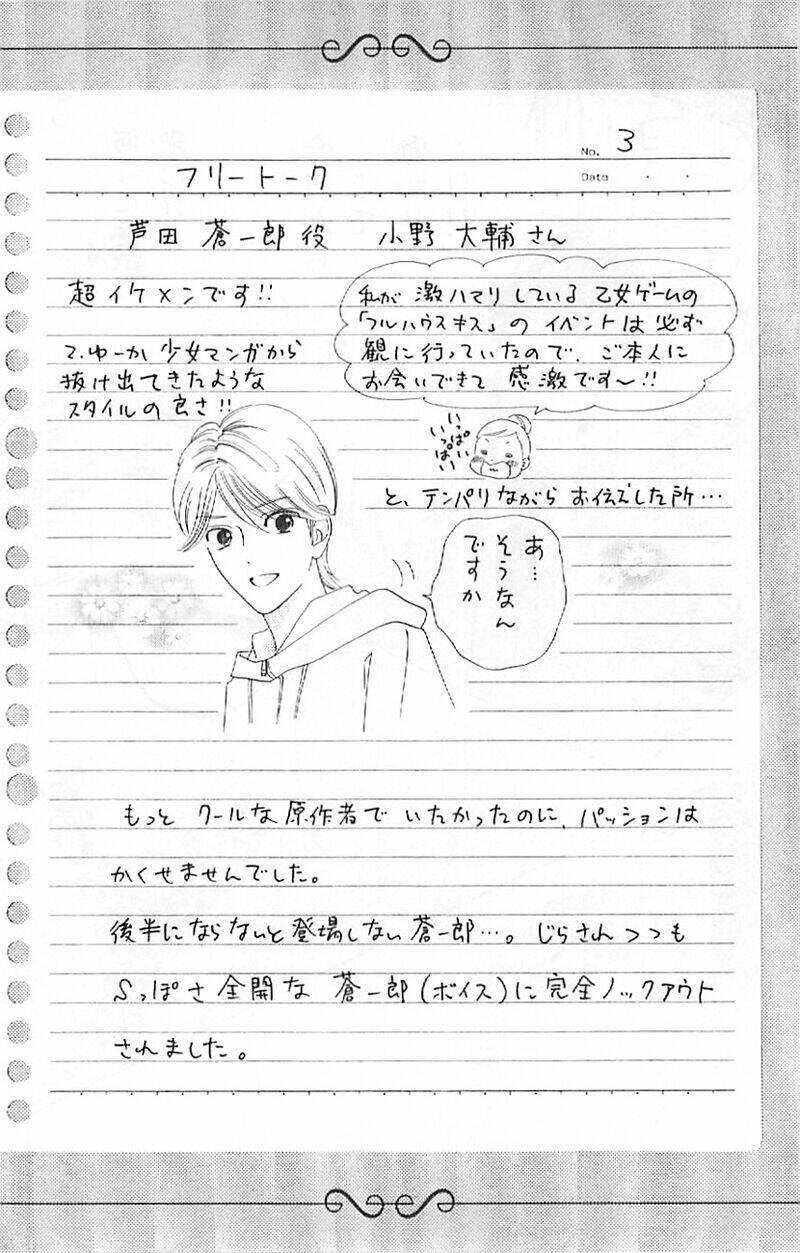 No. 3
Date
フリートーク
芦田 蒼一郎役 小野 大輔さん
超イケメンです!!
てゆーか 少女マンガから
抜け出てきたような
スタイルの良さ!!
私が 激ハマリしている 乙女ゲームの
「フルハウスキス」の イベントは 必ず
観に行っていたので、ご本人に
お会いできて 感激です〜!!
いっぱい
いっぱい
と、テンパリながら お伝えした所…
あ…
そうなん
ですか
もっと クールな 原作者で いたかったのに、パッションは
かくせませんでした。
後半にならないと登場しない 蒼一郎…。じらされつつも
Sっぽさ 全開な 蒼一郎(ボイス)に 完全ノックアウト
されました。